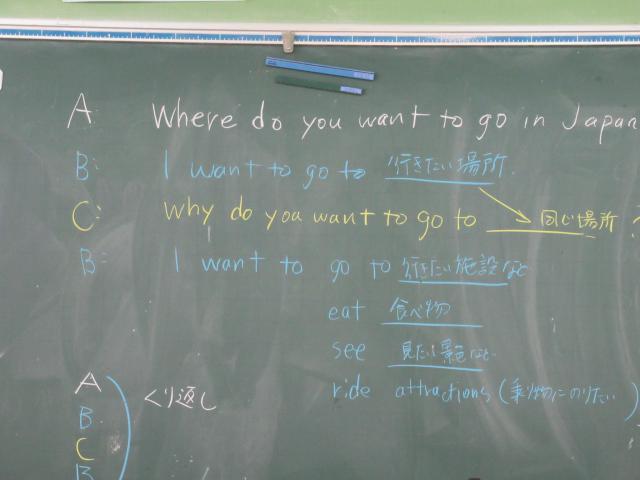 A Where do you want to go in Japan
B: I want to go to 行きたい場所.
C: Why do you want to go to 同じ場所?
B: I want to go to 行きたい施設など
eat 食べ物
see 見たい景色など
ride attractions (乗り物にのりたい)
A
B
C
B
くり返し